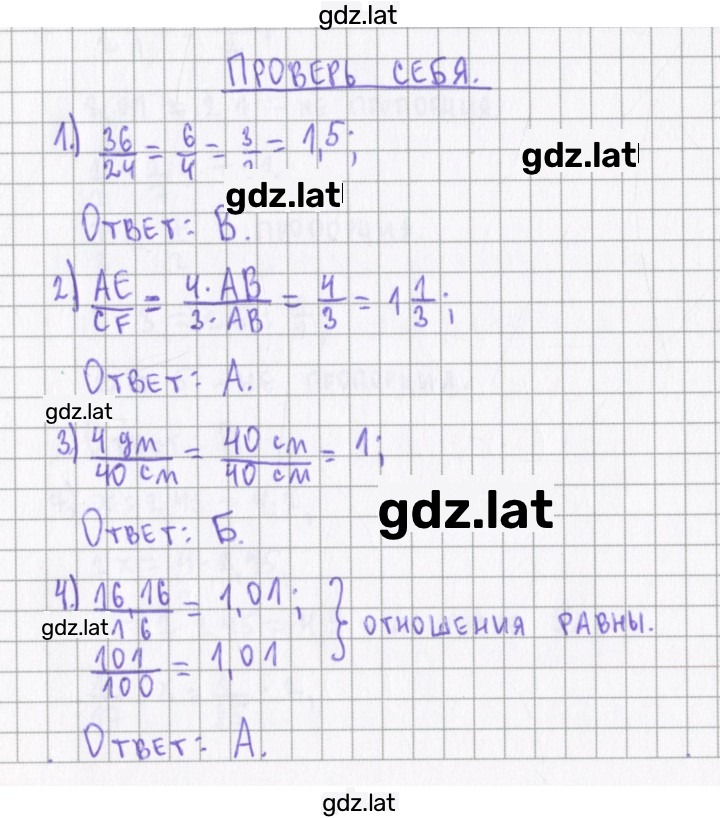 gdz.lat
ПРОВЕРЬ СЕБЯ.
1.) 36/24 = 6/4 = 3/2 = 1,5;
gdz.lat
gdz.lat
ОТВЕТ: В.
2) AE/CF = 4·AB/3·AB = 4/3 = 1 1/3;
ОТВЕТ: А.
gdz.lat
3) 4 дм/40 см = 40 см/40 см = 1;
gdz.lat
ОТВЕТ: Б.
4.) 16,16/1,6 = 1,01; } ОТНОШЕНИЯ РАВНЫ.
gdz.lat
101/100 = 1,01
ОТВЕТ: А.
gdz.lat